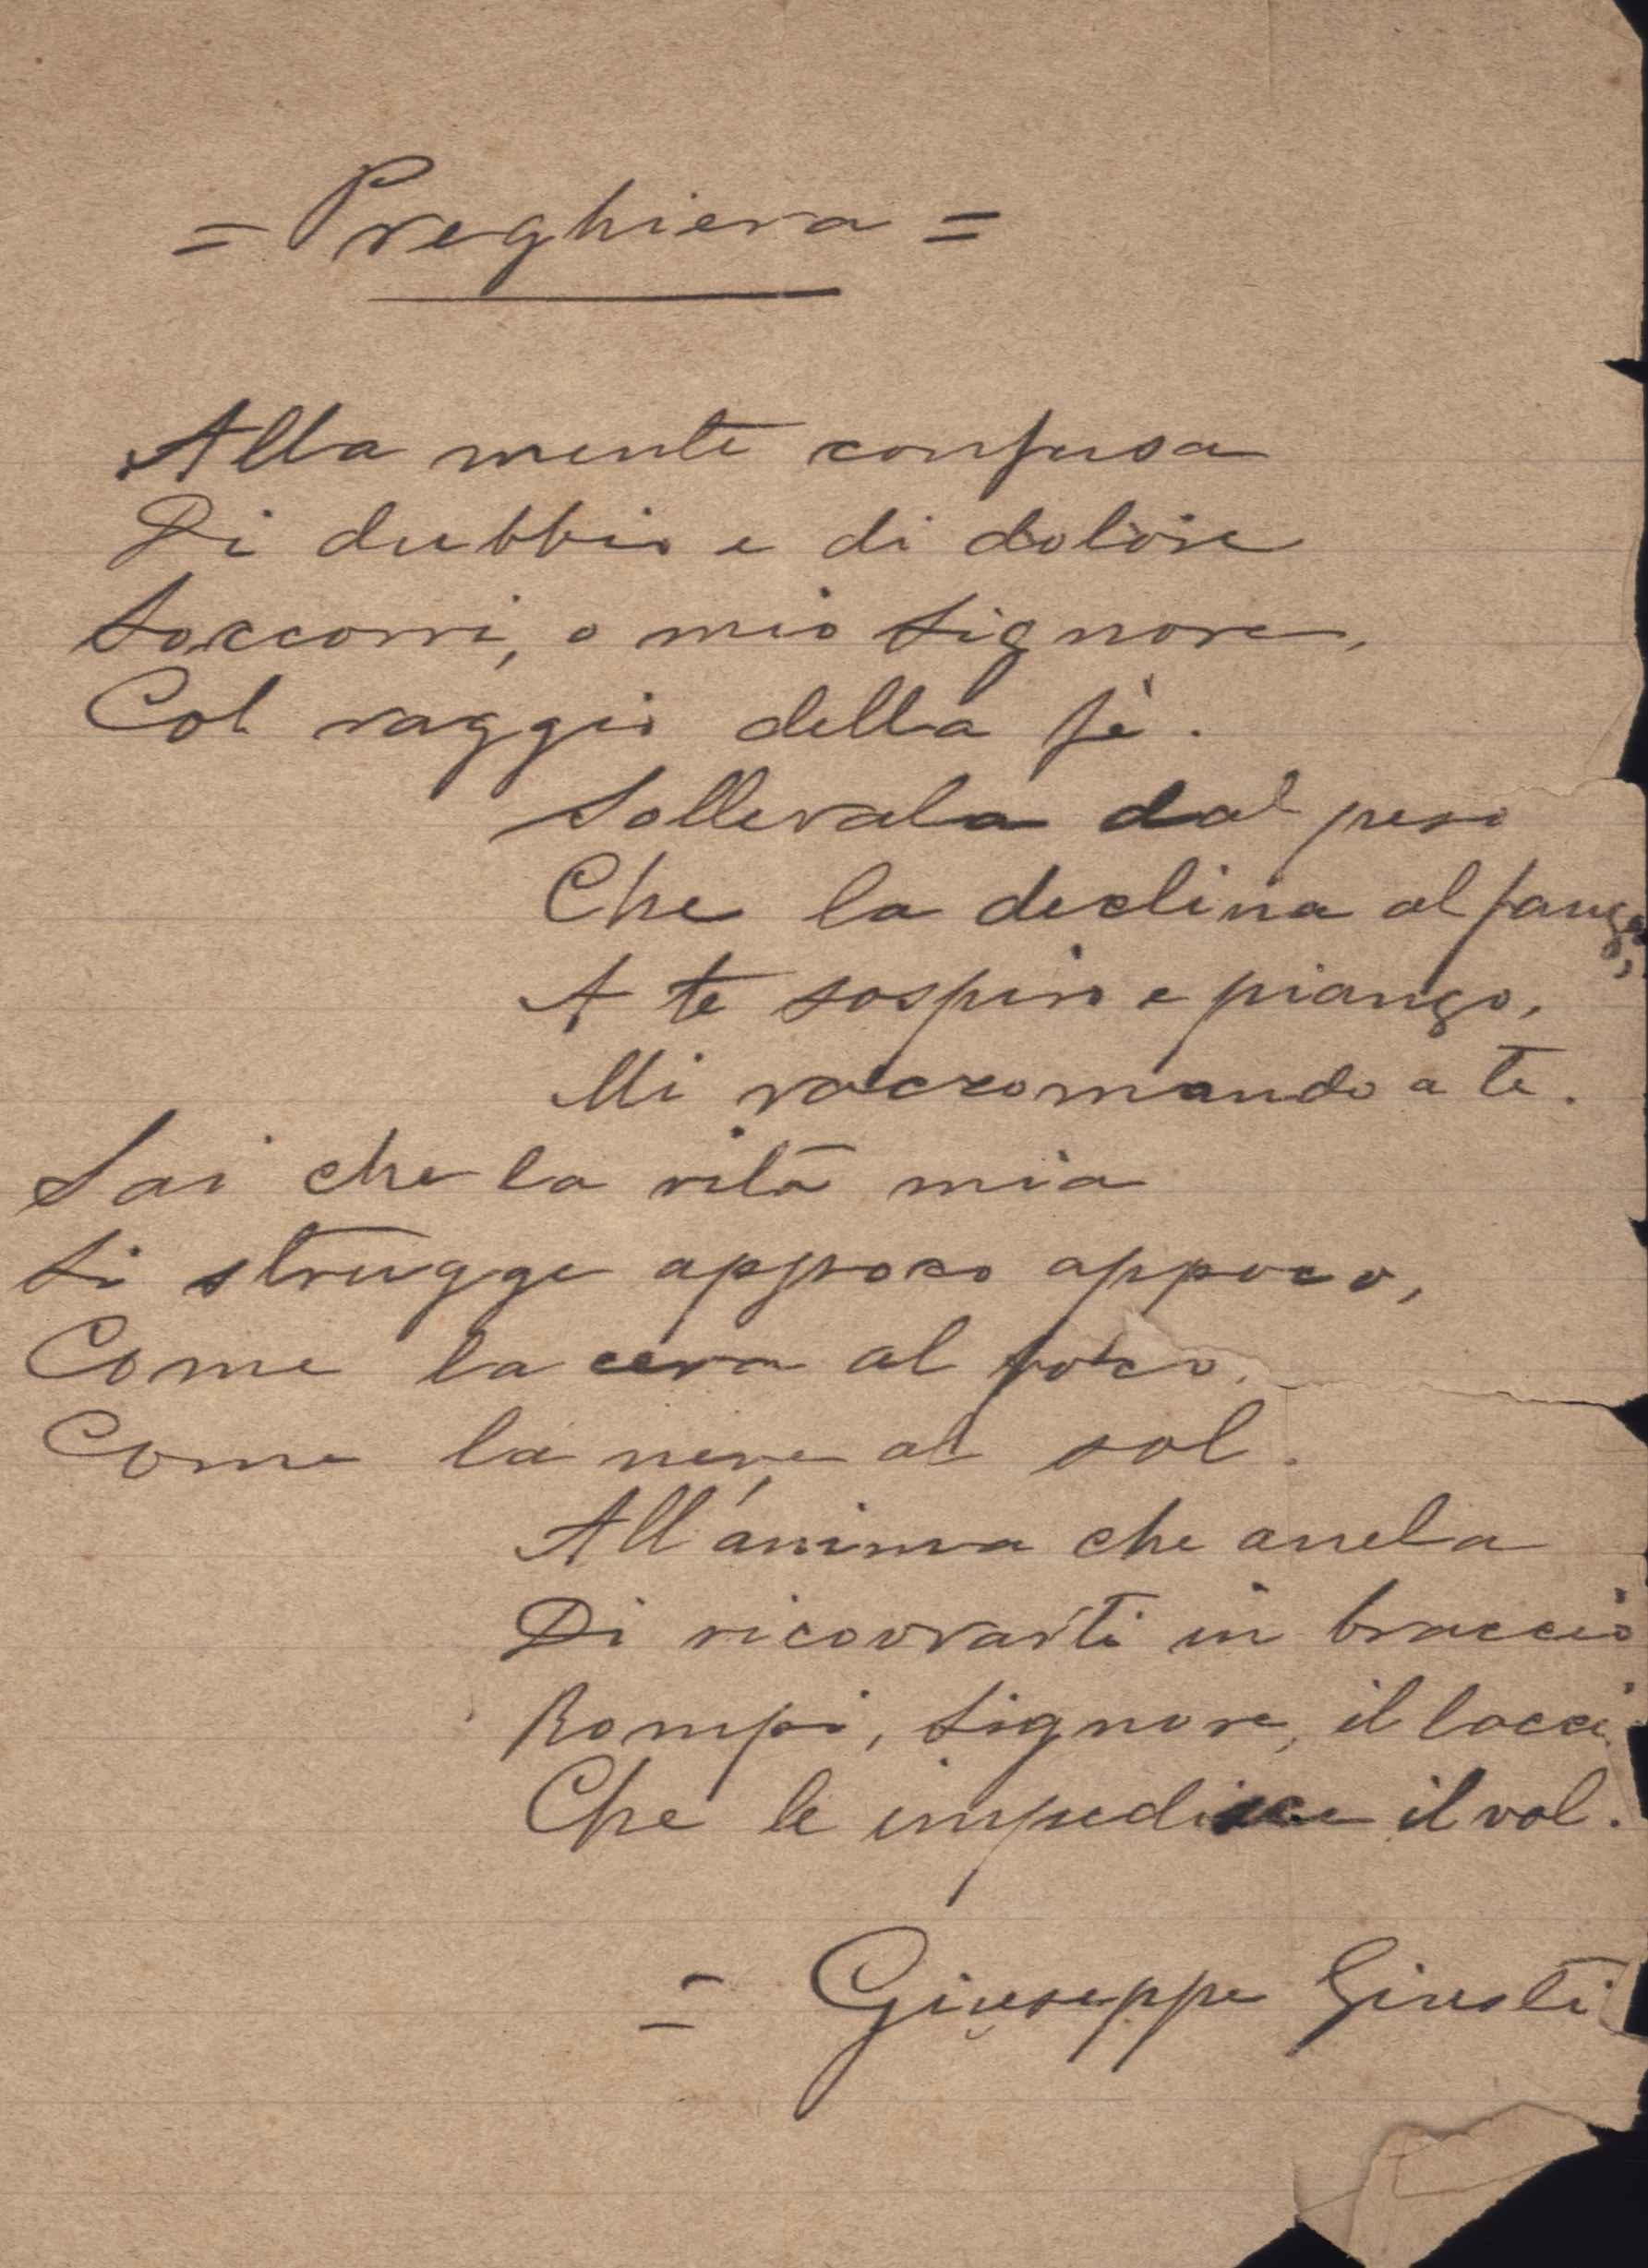 = Preghiera =
Alla mente confusa
Di dubbio e di dolore
Soccorri, o mio Signore,
Col raggio della fè.
Sollevala dal peso
Che la declina al fango,
A te sospiro e piango,
Mi raccomando a te.
Sai che la vita mia
Si strugge appoco appoco,
Come la cera al foco,
Come la neve al sol.
All'anima che anela
Di ricovrarti in braccio
Rompi, Signore, il lacci
Che le impedisce il vol.
= Giuseppe Giusti